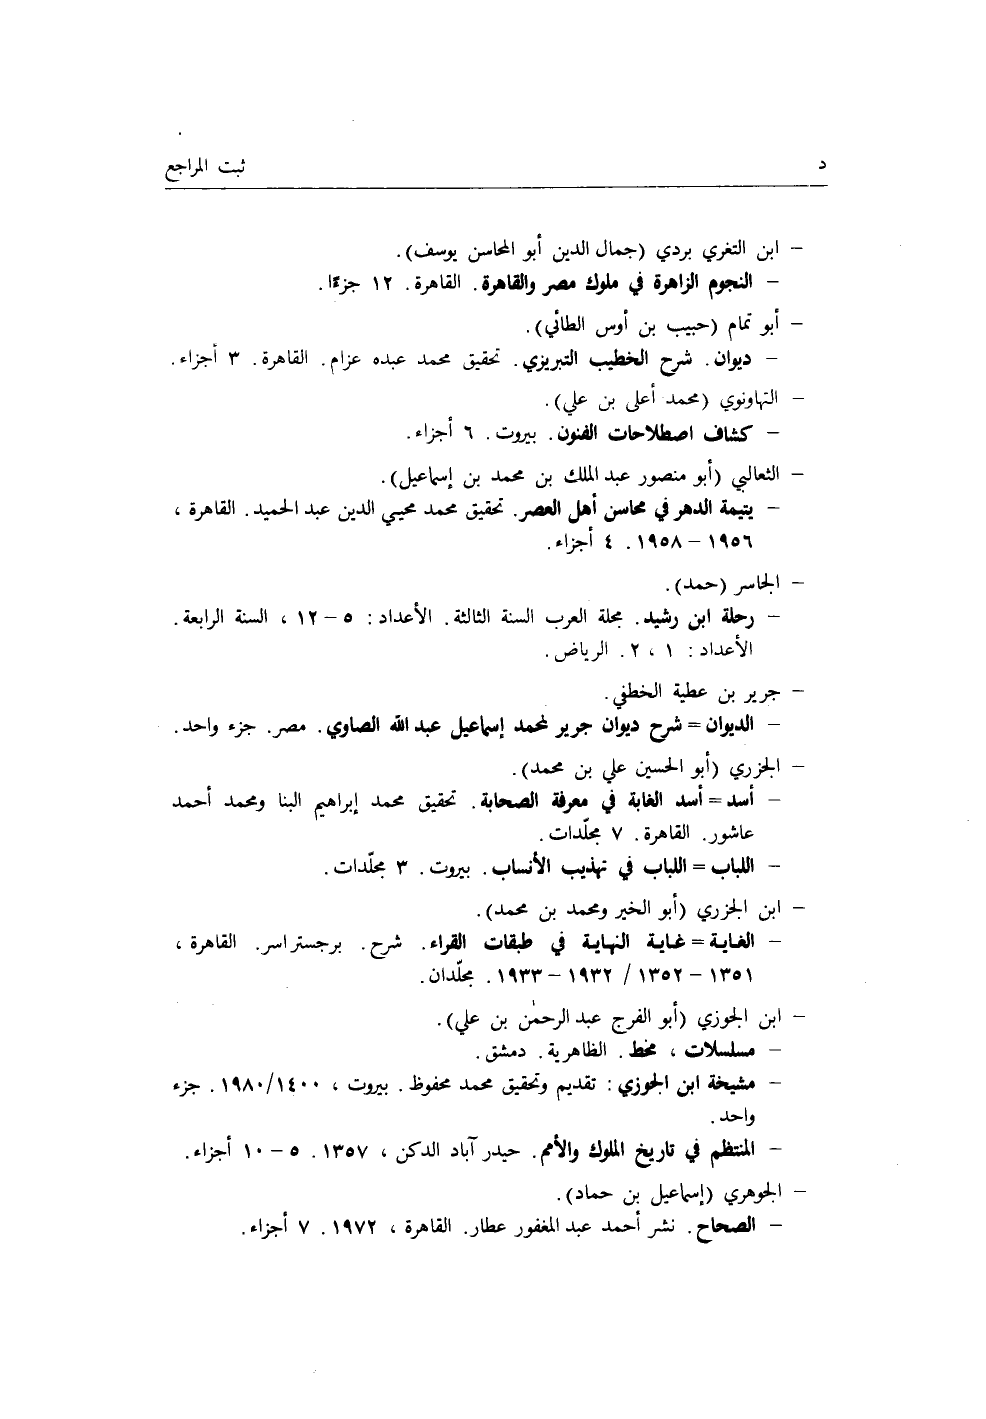 د ثبت المراجع
– ابن التغري بردي (جمال الدين أبو المحاسن يوسف).
– النجوم الزاهرة في ملوك مصر والقاهرة. القاهرة. ١٢ جزءًا.
– أبو تمام (حبيب بن أوس الطائي).
– ديوان. شرح الخطيب التبريزي. تحقيق محمد عبده عزام. القاهرة. ٣ أجزاء.
– التهاونوي (محمد أعلى بن علي).
– كشاف اصطلاحات الفنون. بيروت. ٦ أجزاء.
– الثعالبي (أبو منصور عبد الملك بن محمد بن إسماعيل).
– يتيمة الدهر في محاسن أهل العصر. تحقيق محمد محيي الدين عبد الحميد. القاهرة ،
١٩٥٦ – ١٩٥٨. ٤ أجزاء.
– الجاسر (حمد).
– رحلة ابن رشيد. مجلة العرب السنة الثالثة. الأعداد : ٥ – ١٢ ، السنة الرابعة.
الأعداد : ١ ، ٢. الرياض.
– جرير بن عطية الخطفي.
– الديوان = شرح ديوان جرير لمحمد إسماعيل عبد الله الصاوي. مصر. جزء واحد.
– الجزري (أبو الحسين علي بن محمد).
– أسد = أسد الغابة في معرفة الصحابة. تحقيق محمد إبراهيم البنا ومحمد أحمد
عاشور. القاهرة. ٧ مجلّدات.
– اللباب = اللباب في تهذيب الأنساب. بيروت. ٣ مجلّدات.
– ابن الجزري (أبو الخير ومحمد بن محمد).
– الغاية = غاية النهاية في طبقات القراء. شرح. برجستراسر. القاهرة ،
١٣٥١ – ١٣٥٢ / ١٩٣٢ – ١٩٣٣. مجلّدان.
– ابن الجوزي (أبو الفرج عبد الرحمٰن بن علي).
– مسلسلات ، مخط. الظاهرية. دمشق.
– مشيخة ابن الجوزي : تقديم وتحقيق محمد محفوظ. بيروت ، ١٩٨٠/١٤٠٠. جزء
واحد.
– المنتظم في تاريخ الملوك والأمم. حيدر آباد الدكن ، ١٣٥٧. ٥ – ١٠ أجزاء.
– الجوهري (إسماعيل بن حماد).
– الصحاح. نشر أحمد عبد المغفور عطار. القاهرة ، ١٩٧٢. ٧ أجزاء.